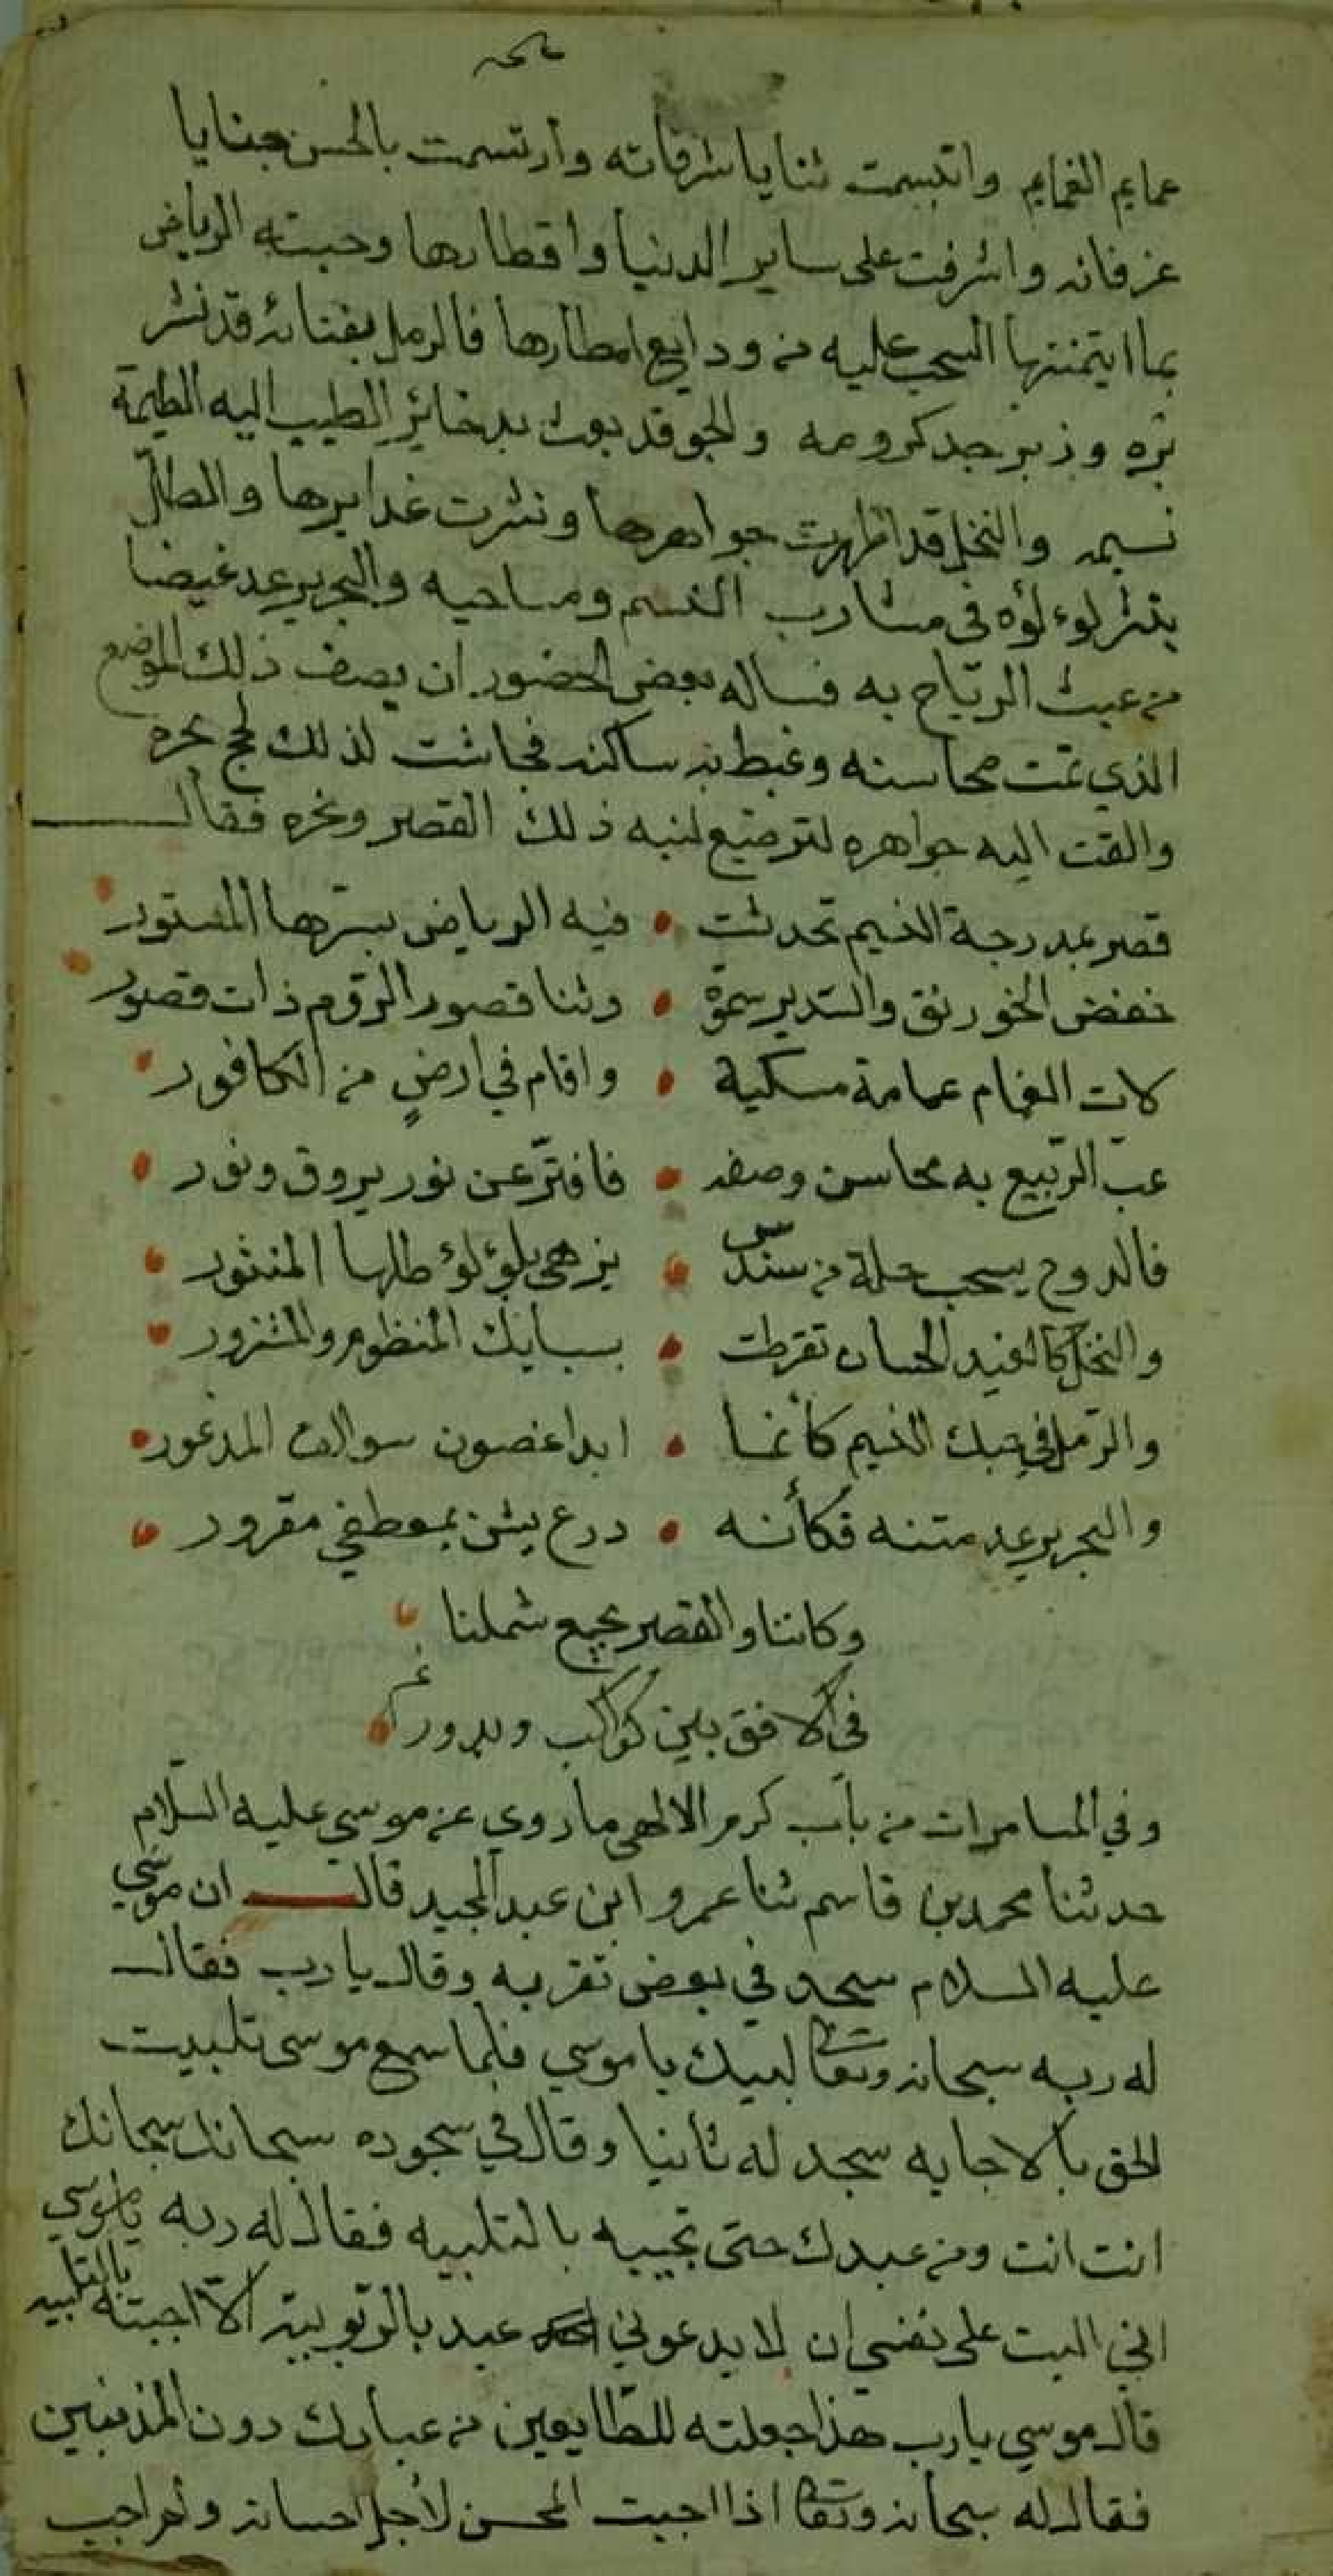 عمايم الغمايم وابتسمت ثنايا شرفاته وارتسمت بالحسن حنايا
غرفاته واشرفت على ساير الدنيا واقطارها وحبته الرياض
بما ايتمنتها السحب عليه من ودايع امطارها فالرمل بفنائه قد نثر
تبره وزبرجد كرومه والجو قد بعث بذخائر الطيب اليه لطيمة
نسيمه والنخل قد اظهرت جواهرها ونثرت غدايرها والطلّ
ينثر لوءلؤه في مشارب النسيم ومساحبه والبحر يرعد غيضا
من عبث الرياح به فساله بعض الحضور ان يصف ذلك الموضع
الذي تمت محاسنه وغبط به ساكنه فجاشت لذلك لجج بحره
والقت اليه جواهره لترصيع لبه ذلك القصر ونحره فقال
قصر بمدرجة النسيم تحدثت • فيه الرياض بسترها المستور
خفض الخورنق والسدير سموّه • وثنا قصور الروم ذات قصور
لاث الغمام عمامة مسكية • واقام في ارضٍ من الكافور
عب الربيع به محاسن وصفه • فافترّ عن نور يروق ونور
فالدوح يسحب حلة من سندس • يزهى بلؤلؤ طلها المنثور
والنخل كالغيد الحسان تقرطت • بسبايك المنظوم والمنثور
والرمل في حبك النسيم كانما • ابدا غصون سوالف المذعور
والبحر يرعد متنه فكأنه • درع يشن بمعطفي مقرور
وكاننا والقصر يجمع شملنا
في الافق بين كواكب وبدور
وفي المسامرات من باب كرم الالهى ما روي عن موسى عليه السلام
حدثنا محمد بن قاسم ثنا عمرو ابن عبد المجيد قال ان موسي
عليه السلام سجد في بعض تقربه وقال يا رب فقال
له ربه سبحانه وتعالى لبيك يا موسي فلما سمع موسى تلبيت
الحق بالاجابه سجد له ثانيا وقال في سجوده سبحانك سبحانك
انت انت ومن عبدك حتى تجيبه بالتلبيه فقال له ربه يا موسي
اني اليت على نفسى ان لا يدعوني عبد بالربوبية الا اجبته بالتلبيه
قال موسي يا رب هذا جعلته للطايعين من عبادك دون المذنبين
فقال له سبحانه وتعالى اذا اجبت المحسن لأجل احسانه ولم اجب